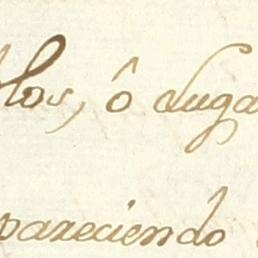 los, ô Luga
pareciendo